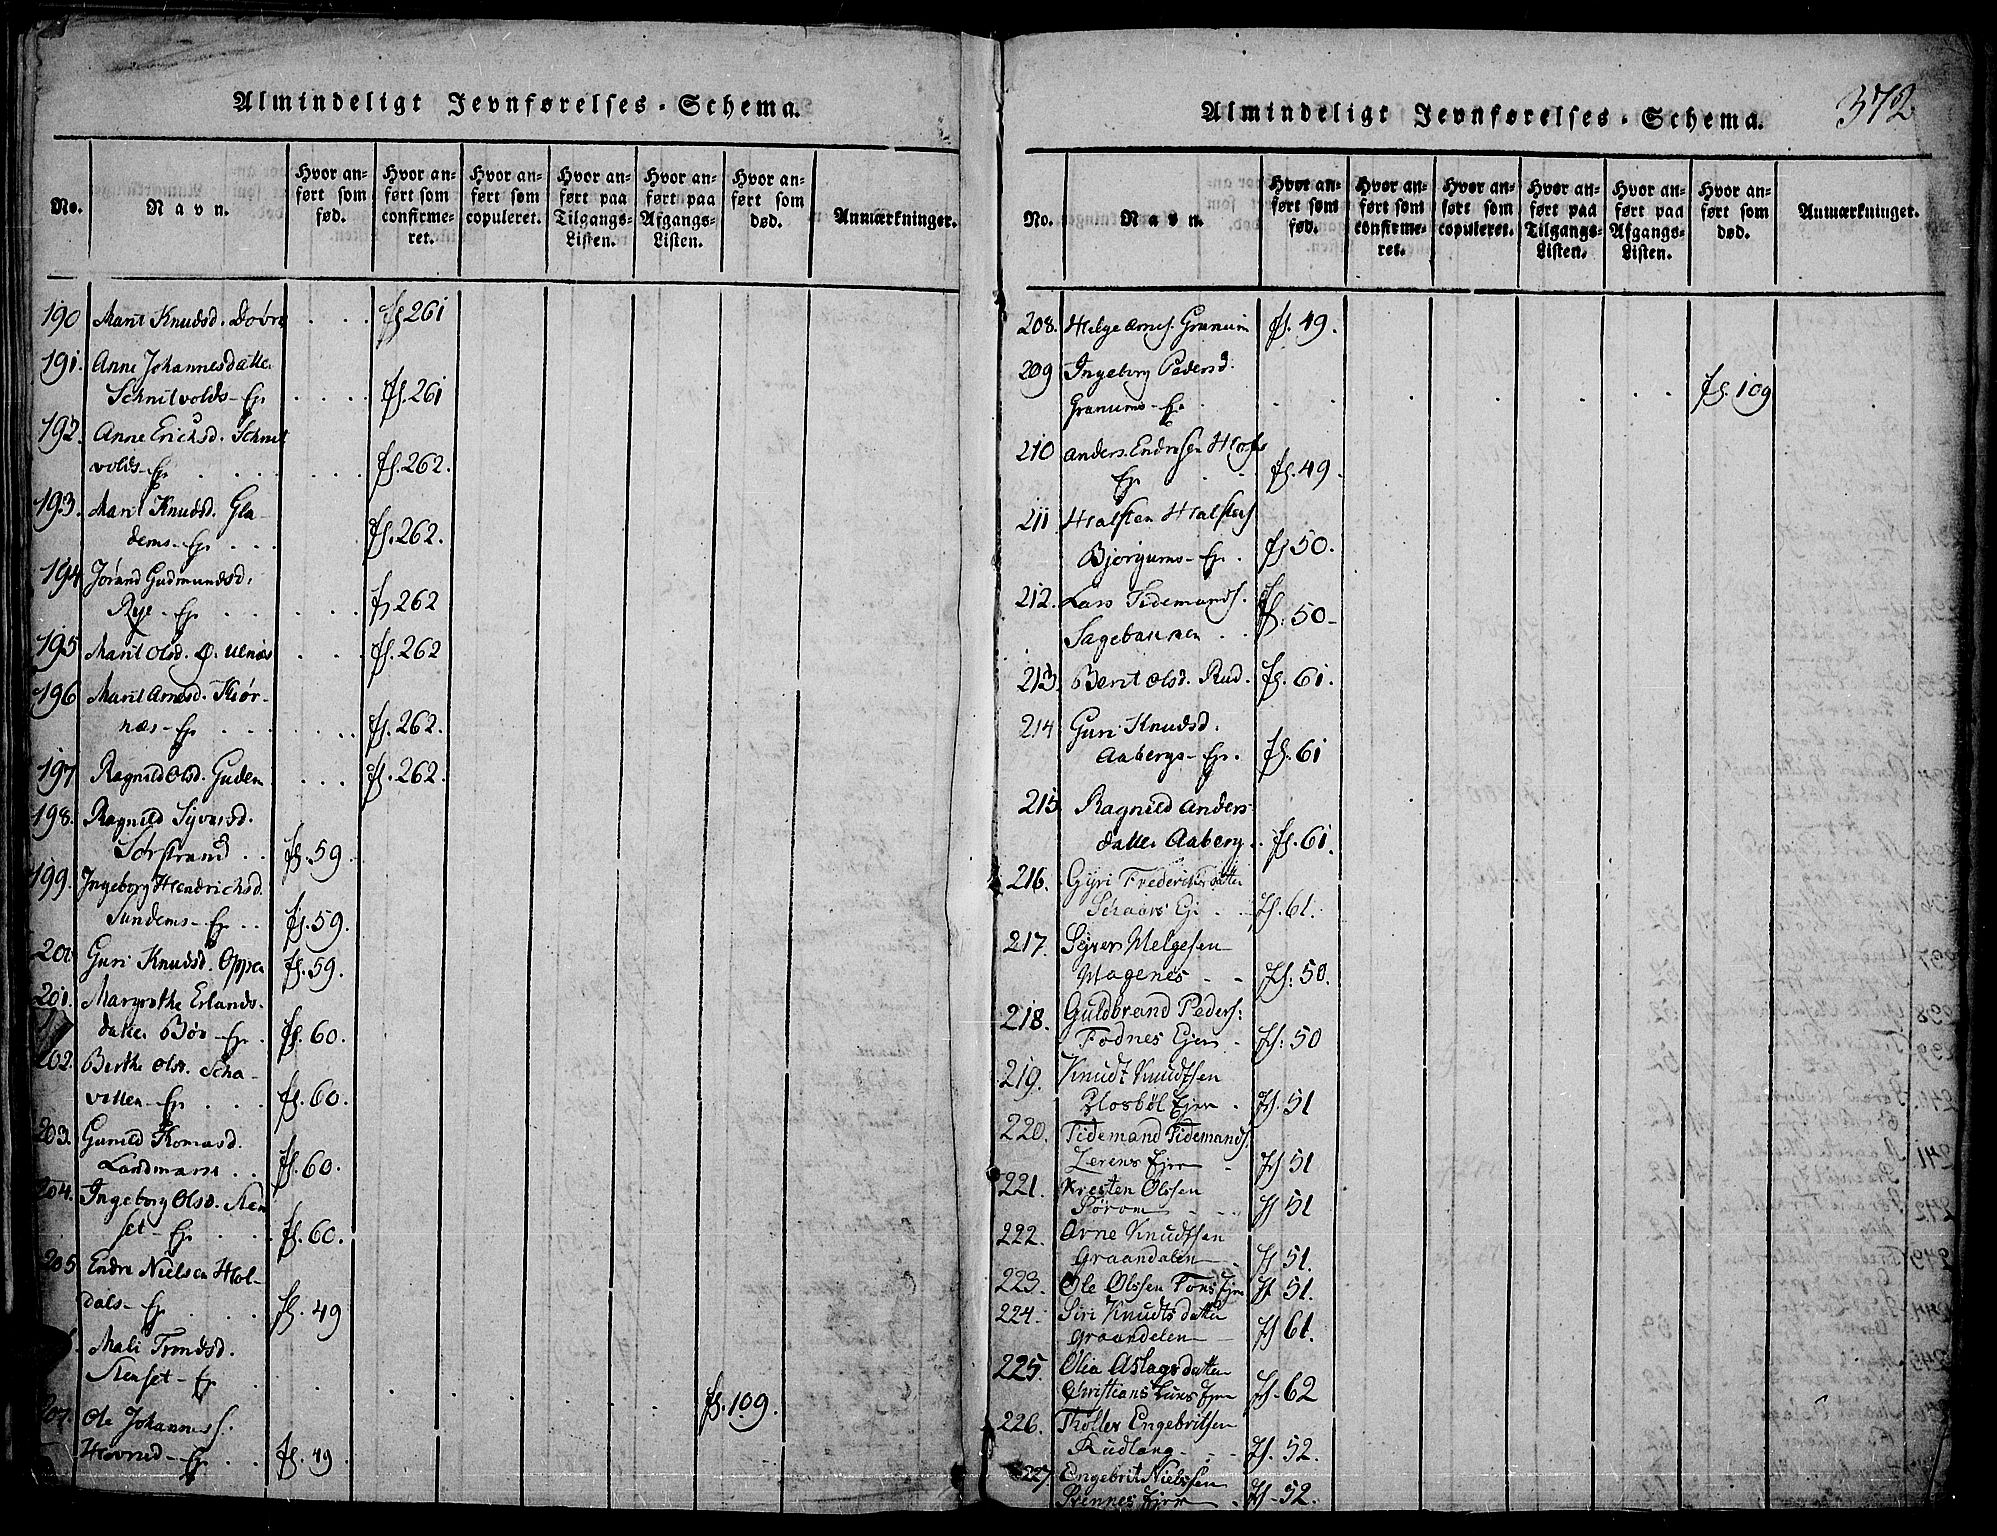 Almindeligt Jevnførelses-Schema.
No.
Navn.
Hvor anført som fød.
Hvor anført som confirmeret.
Hvor anført som copuleret.
Hvor anført paa Tilgangs-Listen.
Hvor anført paa Afgangs-Listen.
Hvor anført som død.
Anmærkninger.
190 Marit Knudsd. Dovre fs 261
191. Anne Johannesdatter
Schnitvolds-Ejr fs. 261
192. Anne Erichsd. Schnit
volds-Ejr fs. 262.
193. Marit Knudsd. Gla-
dems-Ejr fs. 262.
194 Jörand Gudmundsd.
Rye-Ejr fs 262
195 Marit Olsd. Ø. Ulnæs fs. 262
196 Marit Arnesd. Kiør-
næs-Ejr fs. 262.
197 Ragnild Olsd. Gudem fs. 262.
198. Ragnild Syversd.
Sörstrand fs. 59.
199. Ingeborg Hendrichsd.
Sundems-Ejr fs. 59.
200 Guri Knudsd. Oppen fs. 59.
201. Margrethe Erlands-
datter Bön-Ejr. fs. 60.
202. Berthe Olsd. Scha-
vollen-Ejr fs. 60.
203. Gunild Thomasd.
Landmarn fs. 60.
204. Ingeborg Olsd. Ren
set-Ejr fs. 60.
205 Endre Nielsen Hol-
dals-Ejr fs. 49
Mali Trondsd.
Renset-Ejr fs. 109.
207. Ole Johanness.
Hövrud-Ejr fs. 49.
Almindeligt Jevnførelses-Schema.
372
No.
Navn.
Hvor anført som fød.
Hvor anført som confirmeret.
Hvor anført som copuleret.
Hvor anført paa Tilgangs-Listen.
Hvor anført paa Afgangs-Listen.
Hvor anført som død.
Anmærkninger.
208. Helge Arnes. Granum fs. 49.
209 Ingeborg Pedersd.
Granums-Ejr fs. 109
210 Anders Endresen Hofs
Ejr fs. 49
211 Halsten Halstens
Bjorgums-Ejr. fs 50.
212. Lars Tidemands.
Sagebakken fs. 50-
213 Berit Olsd. Rud. fs. 61.
214 Guri Knudsd.
Aabergs-Ejr. fs. 61
215 Ragnild Anders-
datter Aaberg fs. 61.
216. Gyri Fredericksdatter
Schaars Ej fs. 61.
217. Syver Helgesen
Hagenes fs. 50.
218. Guldbrand Peders:
Fodnes Ejer fs: 50
219. Knudt Knudtsen
Hosböl Ejer fs. 51
220. Tidemand Tidemands.
Lerens Ejer fs 51
221. Kresten Olssen
Rörom fs 51
222. Arne Knudtsen
Graandalen fs 51.
223. Ole Olssen Fons Ejer fs 51.
224. Siri Knudtsdatter
Graandelen fs 61.
225. Olia Aslagsdatter
Christians Luns Ejer fs. 62
226. Tholler Engebritsen
Rudlang fs. 52.
227. Engebrit Nielssen
Stennes Ejer fs. 52.